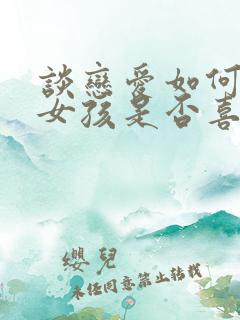 談戀愛如何
女孩是否喜
纓兒
未任同意禁止轉載